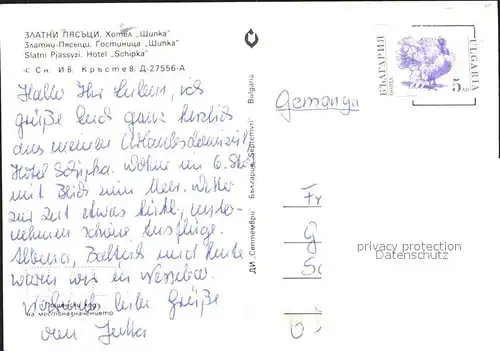 ЗЛАТНИ ПЯСЪЦИ. Хотел „Шипка"
Златни-Пясыци. Гостиница „Шипка"
Slatni Pjassyzi. Hotel „Schipka"
с Сн. Ив. Кръстев. Д-27556-А
Hallo Ihr Lieben, ich
grüße Euch ganz herzlich
aus meinem Urlaubsdomizil
Hotel Schipka. Wohne im 6. St.
mit Blick zum Meer. Wetter
zur Zeit etwas kühl, unter-
nehmen schöne Ausflüge.
Albena, Baltschik und heute
waren wir in Nessebar.
liebe Grüße
на местоназначението
von Jutta
ДИ „Септември" България Septemvri Bulgaria
Germanya
БЪЛГАРИЯ
ПОЩА
5 ст
BULGARIA
Fr
G
Sc
privacy protection
Datenschutz